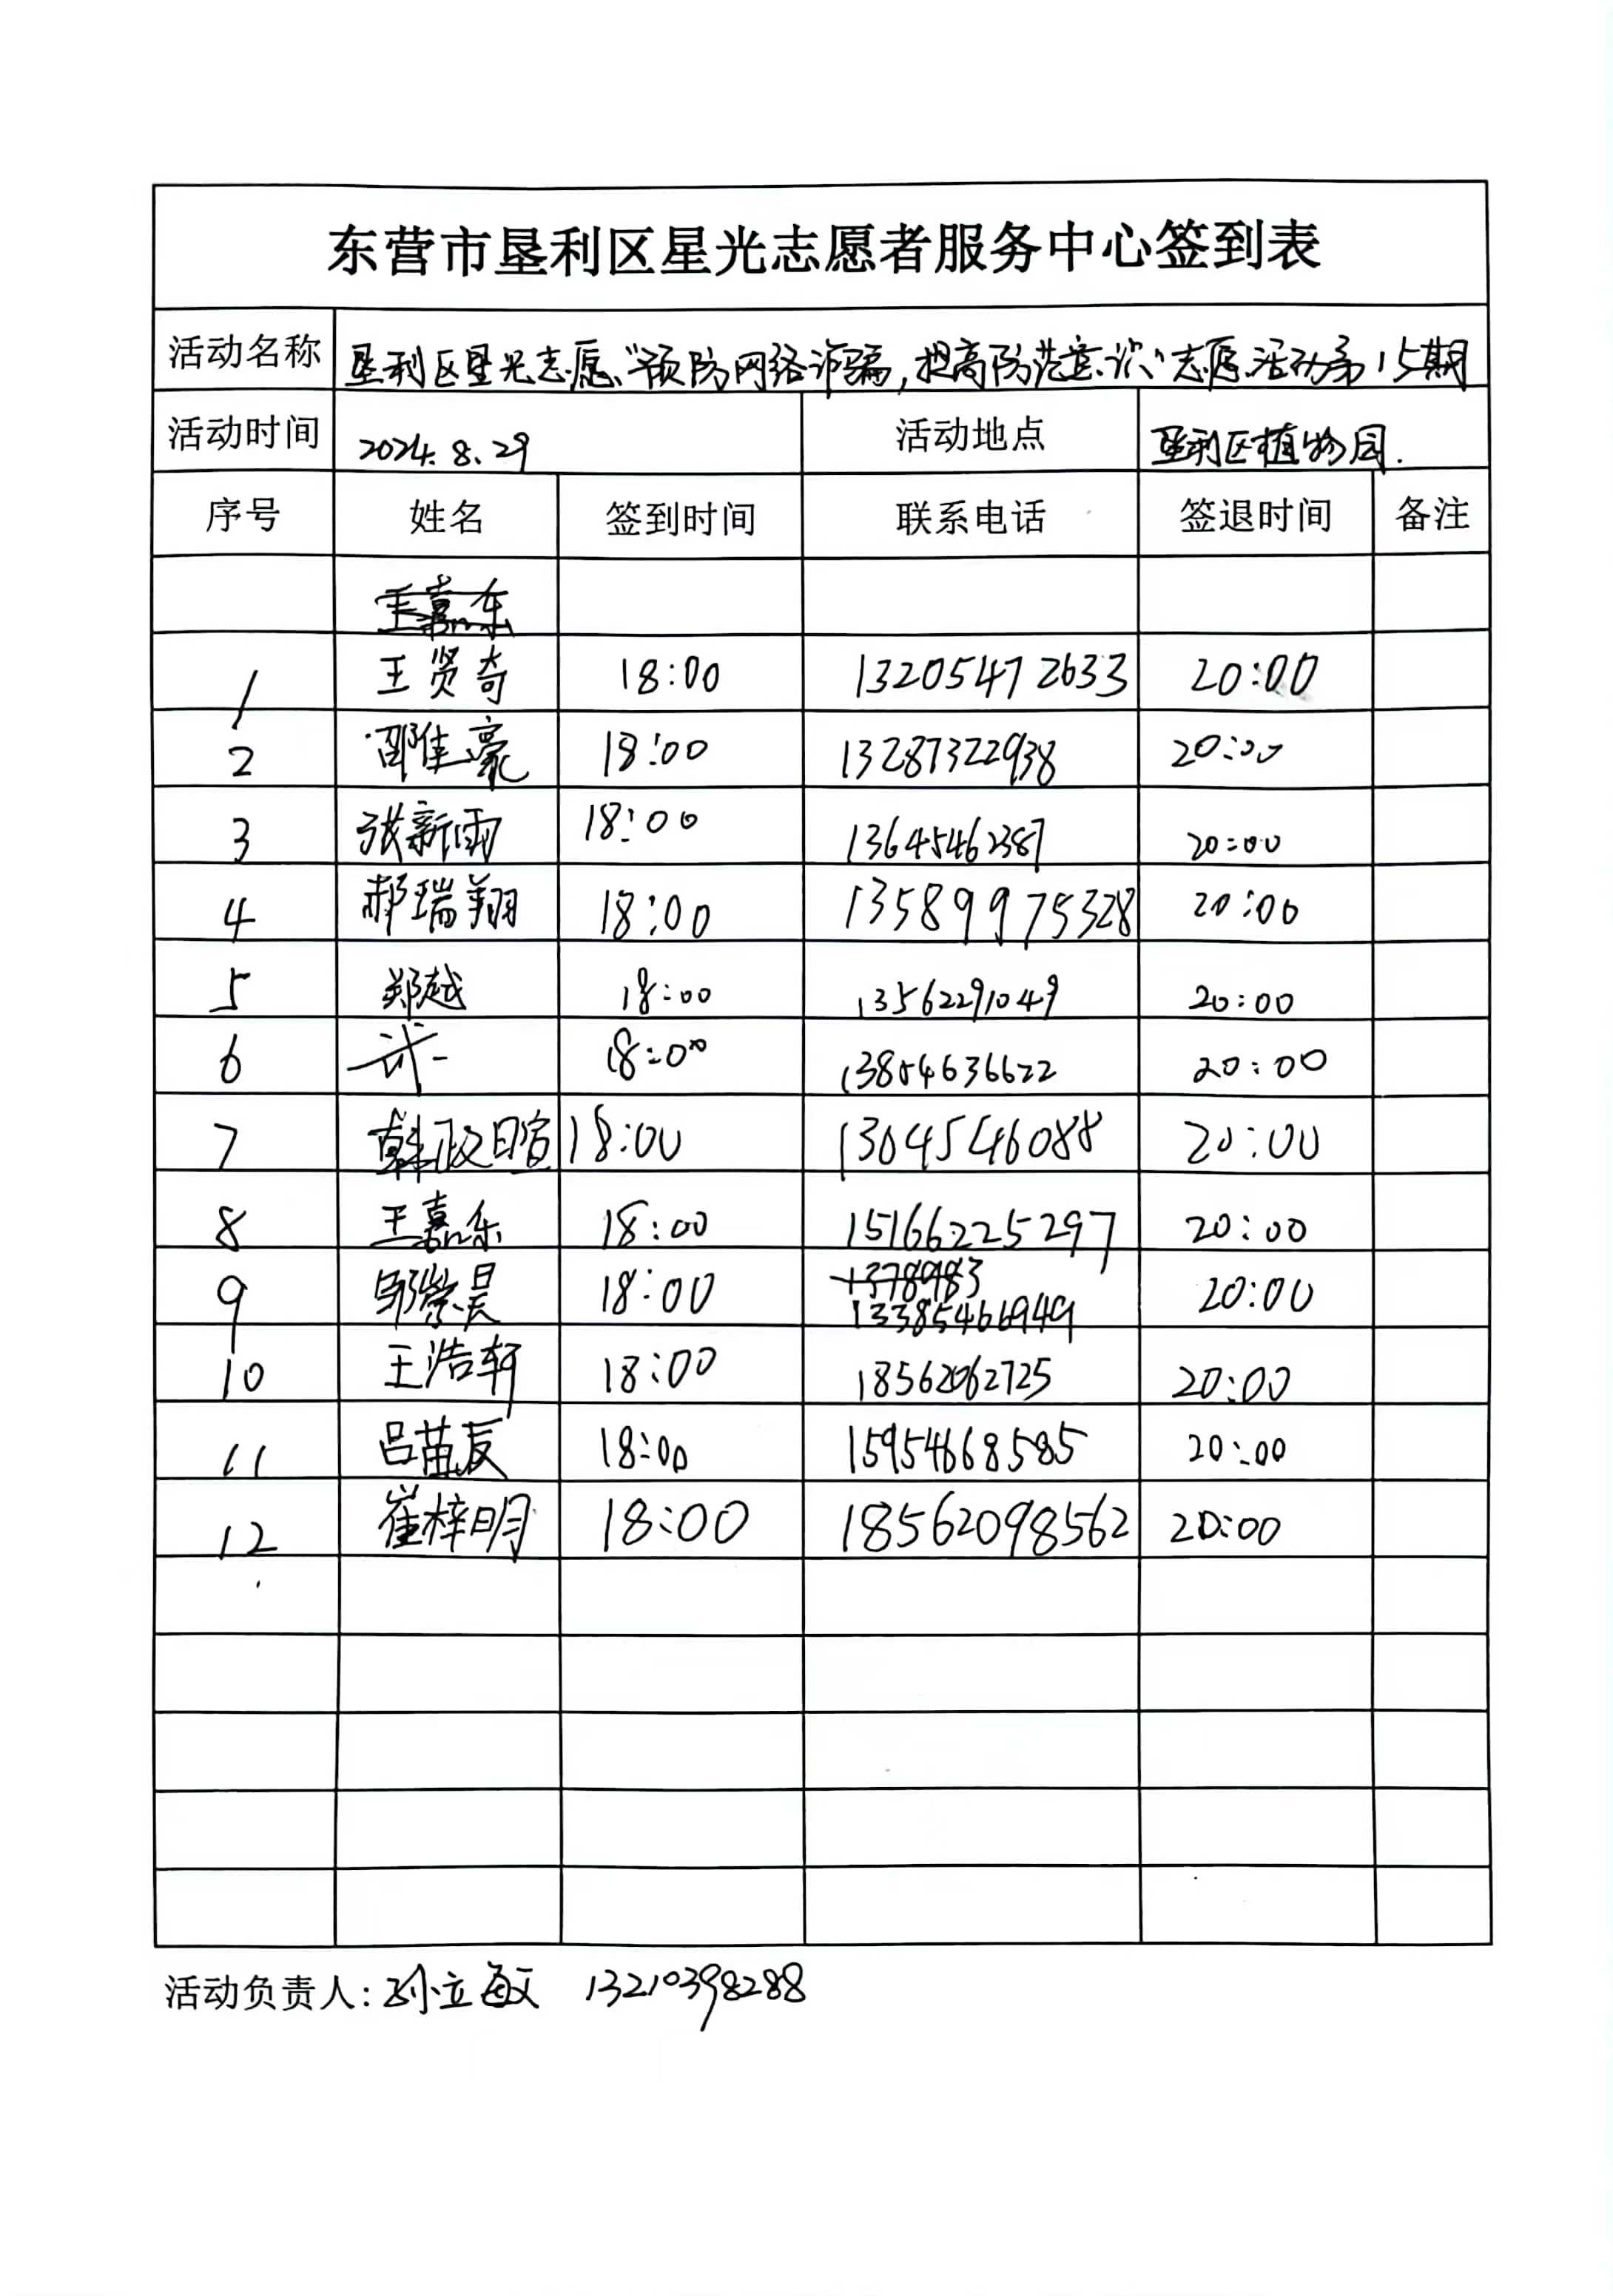 东营市垦利区星光志愿者服务中心签到表
活动名称 垦利区星光志愿“预防网络诈骗,提高防范意识”志愿活动第15期
活动时间 2024.8.29 活动地点 垦利区植物园.
序号 姓名 签到时间 联系电话 签退时间 备注
王嘉东
1 王贤奇 18:00 13205472633 20:00
2 邵佳豪 18:00 13287322938 20:00
3 张新雨 18:00 13645462387 20:00
4 郝瑞翔 18:00 13589975328 20:00
5 郑越 18:00 13562291049 20:00
6 武一 18:00 13854636622 20:00
7 韩政暄 18:00 1364546088 20:00
8 王嘉东 18:00 15166225297 20:00
9 邹崇昊 18:00 13789483 20:00
13385466949
10 王浩轩 18:00 18562062725 20:00
11 吕苗辰 18:00 15954668585 20:00
12 崔梓明 18:00 18562098562 20:00
活动负责人: 孙立敏 13210398288